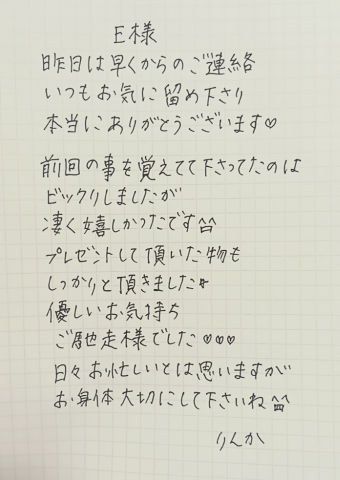 E様
昨日は早くからのご連絡
いつもお気に留め下さり
本当にありがとうございます♡
前回の事を覚えてて下さってたのは
ビックリしましたが
凄く嬉しかったです^^
プレゼントして頂いた物も
しっかりと頂きました☆
優しいお気持ち
ご馳走様でした♡♡♡
日々お忙しいとは思いますが
お身体大切にして下さいね^^
りんか